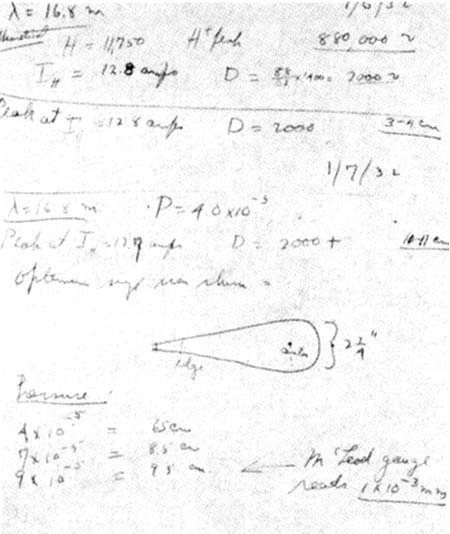 λ = 16.8 m 1/6/32
H = 11,750 H⁺ peak 880 000 ~
I_H = 12.8 amps D = 2000 ~
Peak at I_H = 12.8 amps D = 2000 3-4 cm
1/7/32
λ = 16.8 m P = 4.0 x 10⁻⁵
Peak at I_H = amps D = 2000 + 10-11 cm
Optimum
edge center 2 1/4"
Pressure:
4 x 10⁻⁵ = 65 cm
7 x 10⁻⁵ = 8.5 cm
9 x 10⁻⁵ = 9 5 cm
← McLeod gauge
reads 1 x 10⁻³ mm